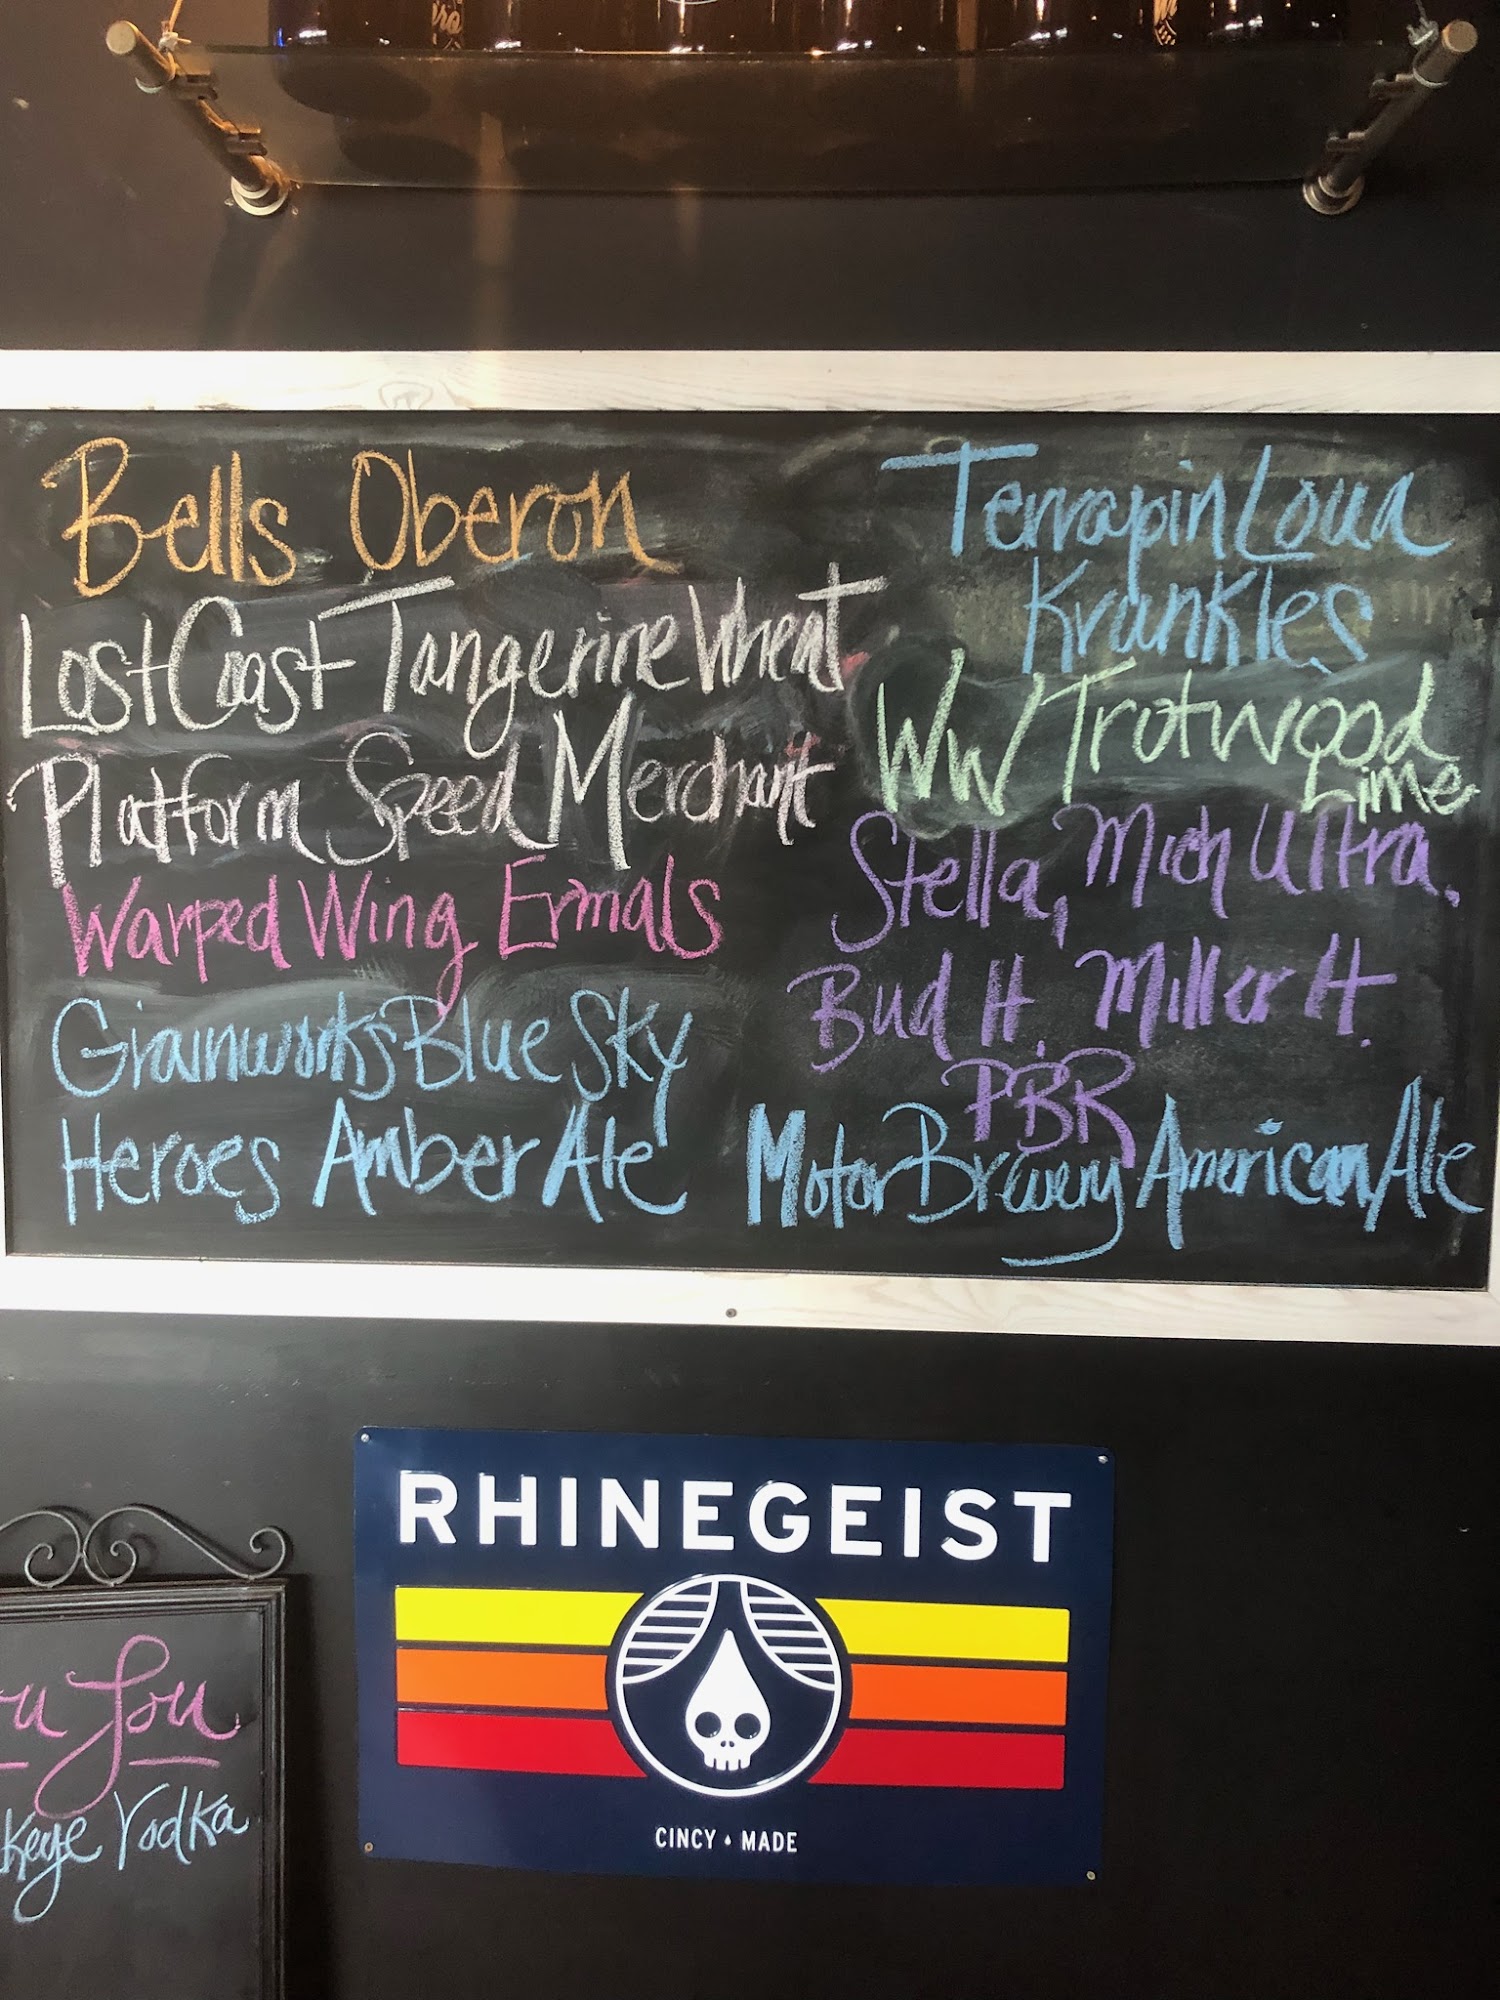 Bells Oberon
Lost Coast Tangerine Wheat
Platform Speed Merchant
Warped Wing Ermals
Grainworks Blue Sky
Heroes Amber Ale
Terrapin Loua
Krunkles
WW Trotwood
Lime
Stella, Mich Ultra.
Bud lt. Miller lt.
PBR
Motor Brewery American Ale
RHINEGEIST
CINCY MADE
You
Vodka